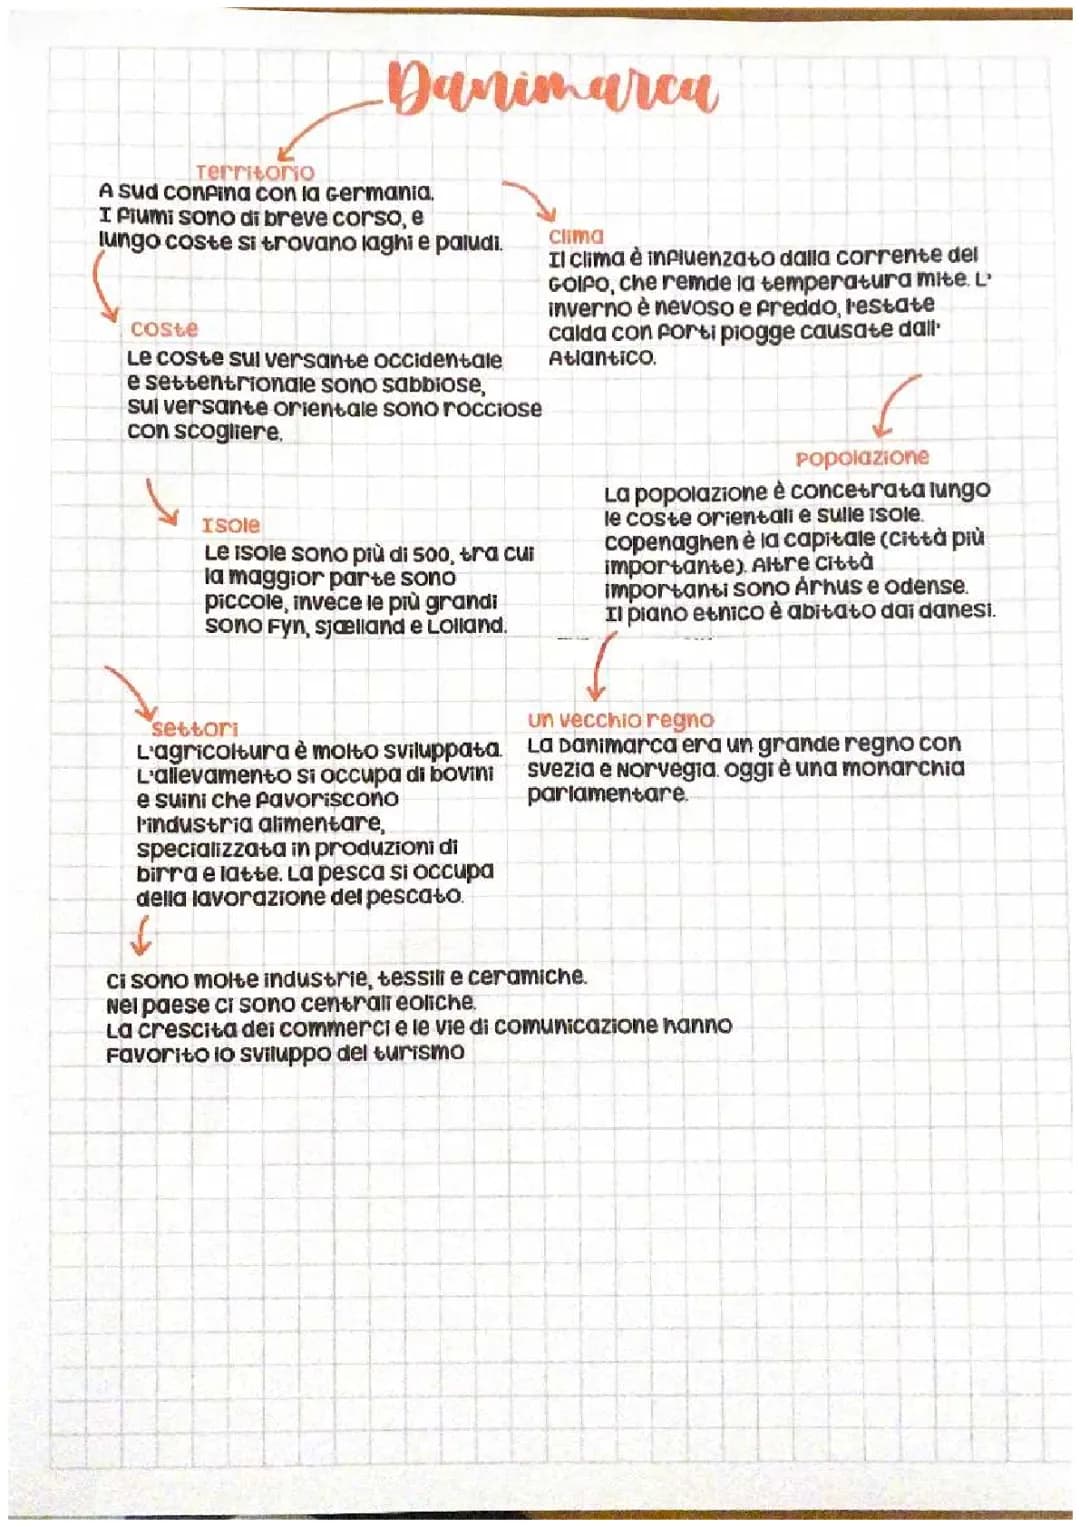 Danimarca
Territorio
A sud confina con la Germania.
I fiumi sono di breve corso, e
lungo coste si trovano laghi e paludi.
coste
Le coste sul versante occidentale
e settentrionale sono sabbiose,
sul versante orientale sono rocciose
con scogliere.
Isole
Le isole sono più di 500, tra cui
la maggior parte sono
piccole, invece le più grandi
sono Fyn, sjælland e Lolland.
settori
L'agricoltura è molto sviluppata.
L'allevamento si occupa di bovini
e suini che favoriscono
l'industria alimentare,
specializzata in produzioni di
birra e latte. La pesca si occupa
della lavorazione del pescato.
ci sono molte industrie, tessili e ceramiche.
Nel paese ci sono centrali eoliche.
La crescita dei commerci e le vie di comunicazione hanno
favorito lo sviluppo del turismo
clima
Il clima è influenzato dalla corrente del
Golfo, che remde la temperatura mite. L'
inverno è nevoso e freddo, l'estate
calda con forti piogge causate dall'
Atlantico.
popolazione
La popolazione è concetrata lungo
le coste orientali e sulle isole.
copenaghen è la capitale (città più
importante). Altre città
importanti sono Århus e odense.
Il piano etnico è abitato dai danesi.
un vecchio regno
La Danimarca era un grande regno con
svezia e Norvegia. oggi è una monarchia
parlamentare.